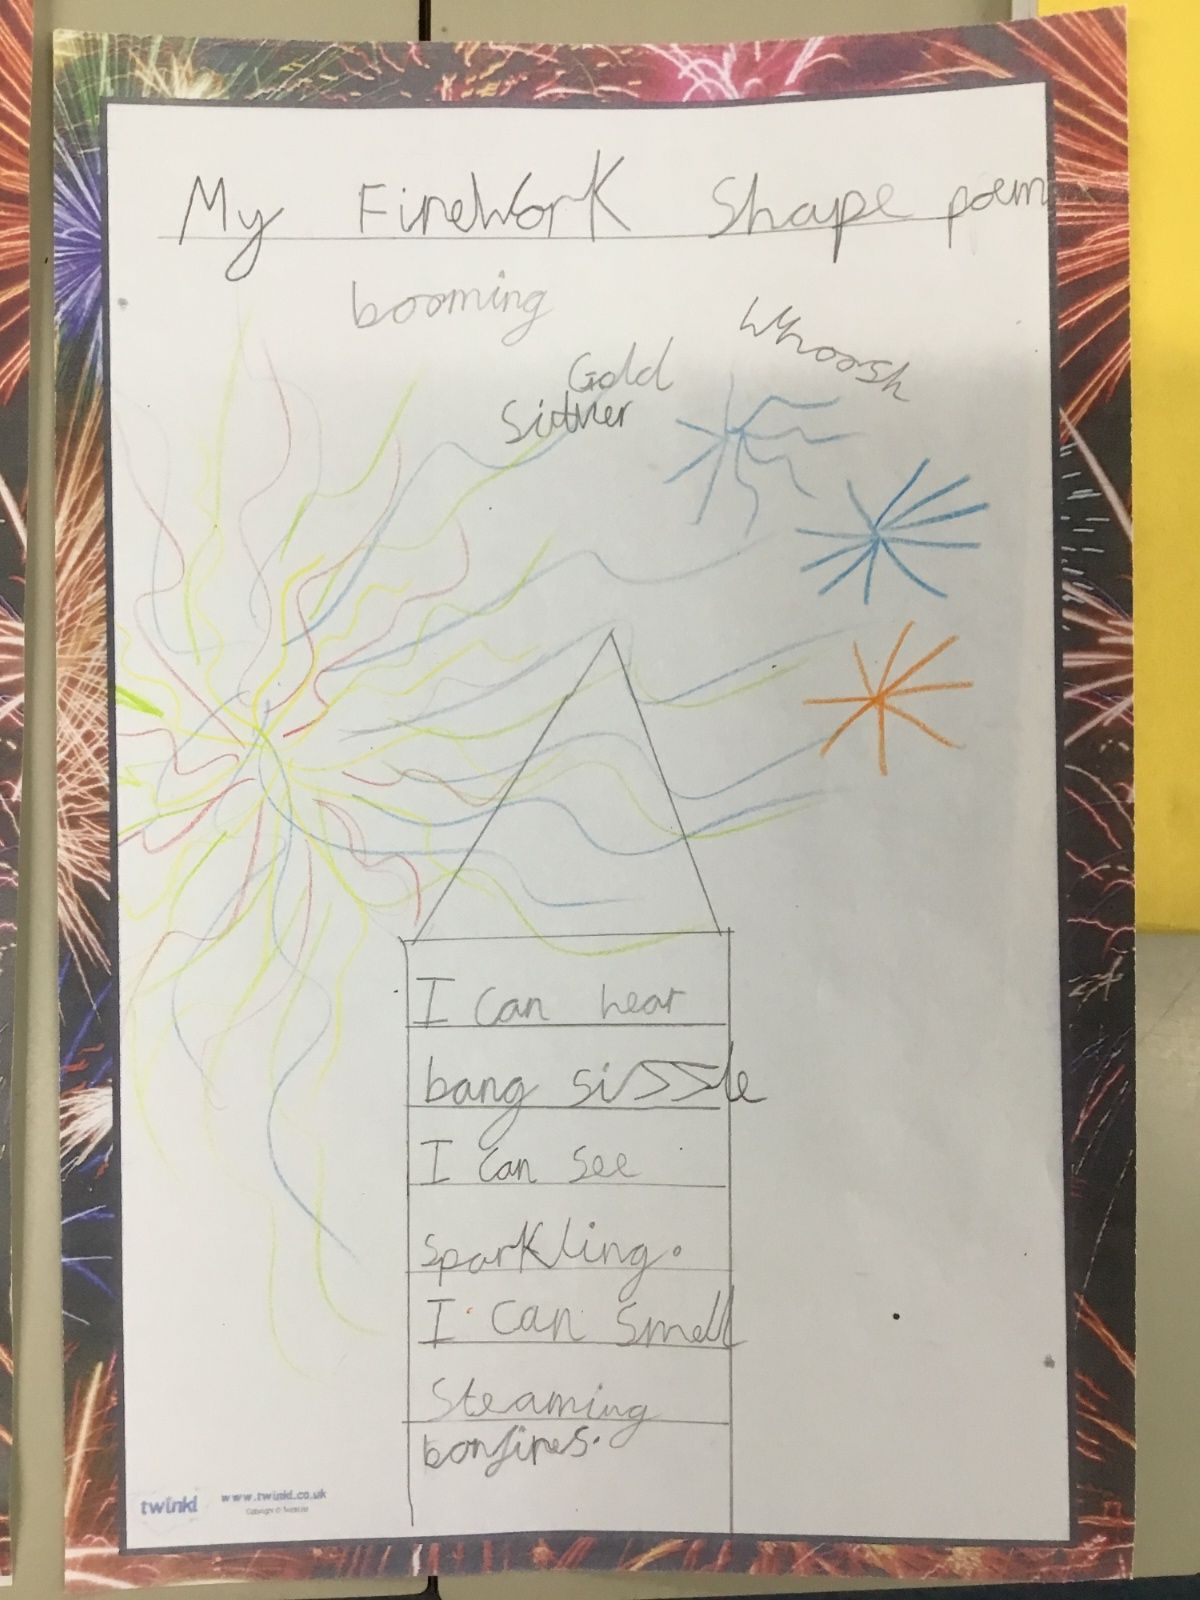 My FireWorK Shape poem
booming
Whoosh
Gold
Sitlver
I can hear
bang sizzle
I can see
sparKling.
I can smell
Steaming
bonfires.
twinkl
www.twinkl.co.uk